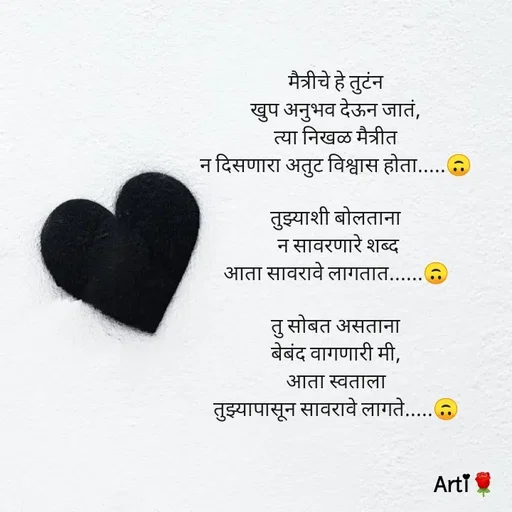 मैत्रीचे हे तुटंन
खुप अनुभव देऊन जातं,
त्या निखळ मैत्रीत
न दिसणारा अतुट विश्वास होता.....🙃
तुझ्याशी बोलताना
न सावरणारे शब्द
आता सावरावे लागतात......🙃
तु सोबत असताना
बेबंद वागणारी मी,
आता स्वताला
तुझ्यापासून सावरावे लागते.....🙃
Arti🌹